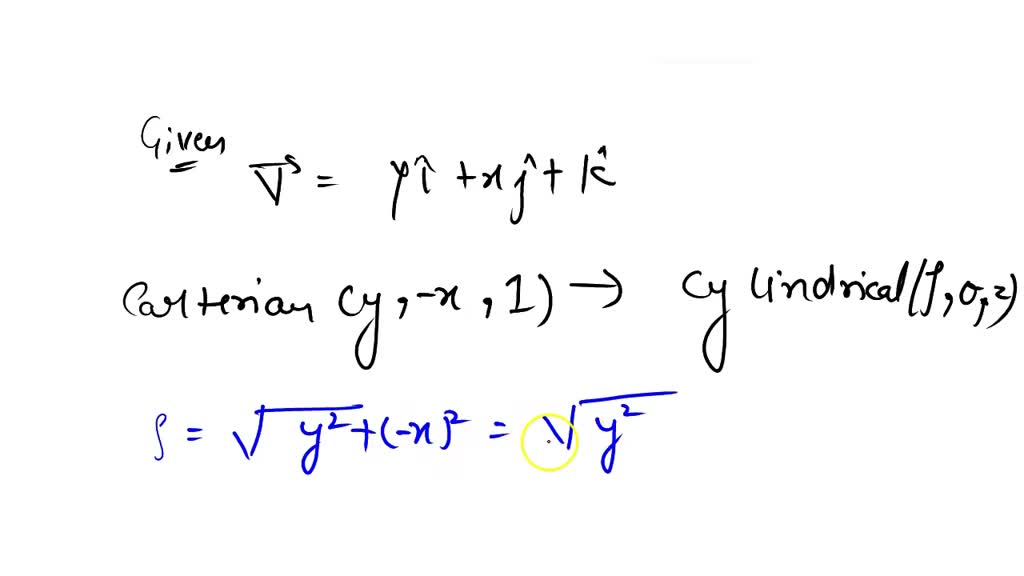 Given
V⃗ = yî + xĵ + k̂
Carterian (y, -x, 1) → Cylindrical (ρ, σ, z)
ρ = √y² + (-x)² = √y²